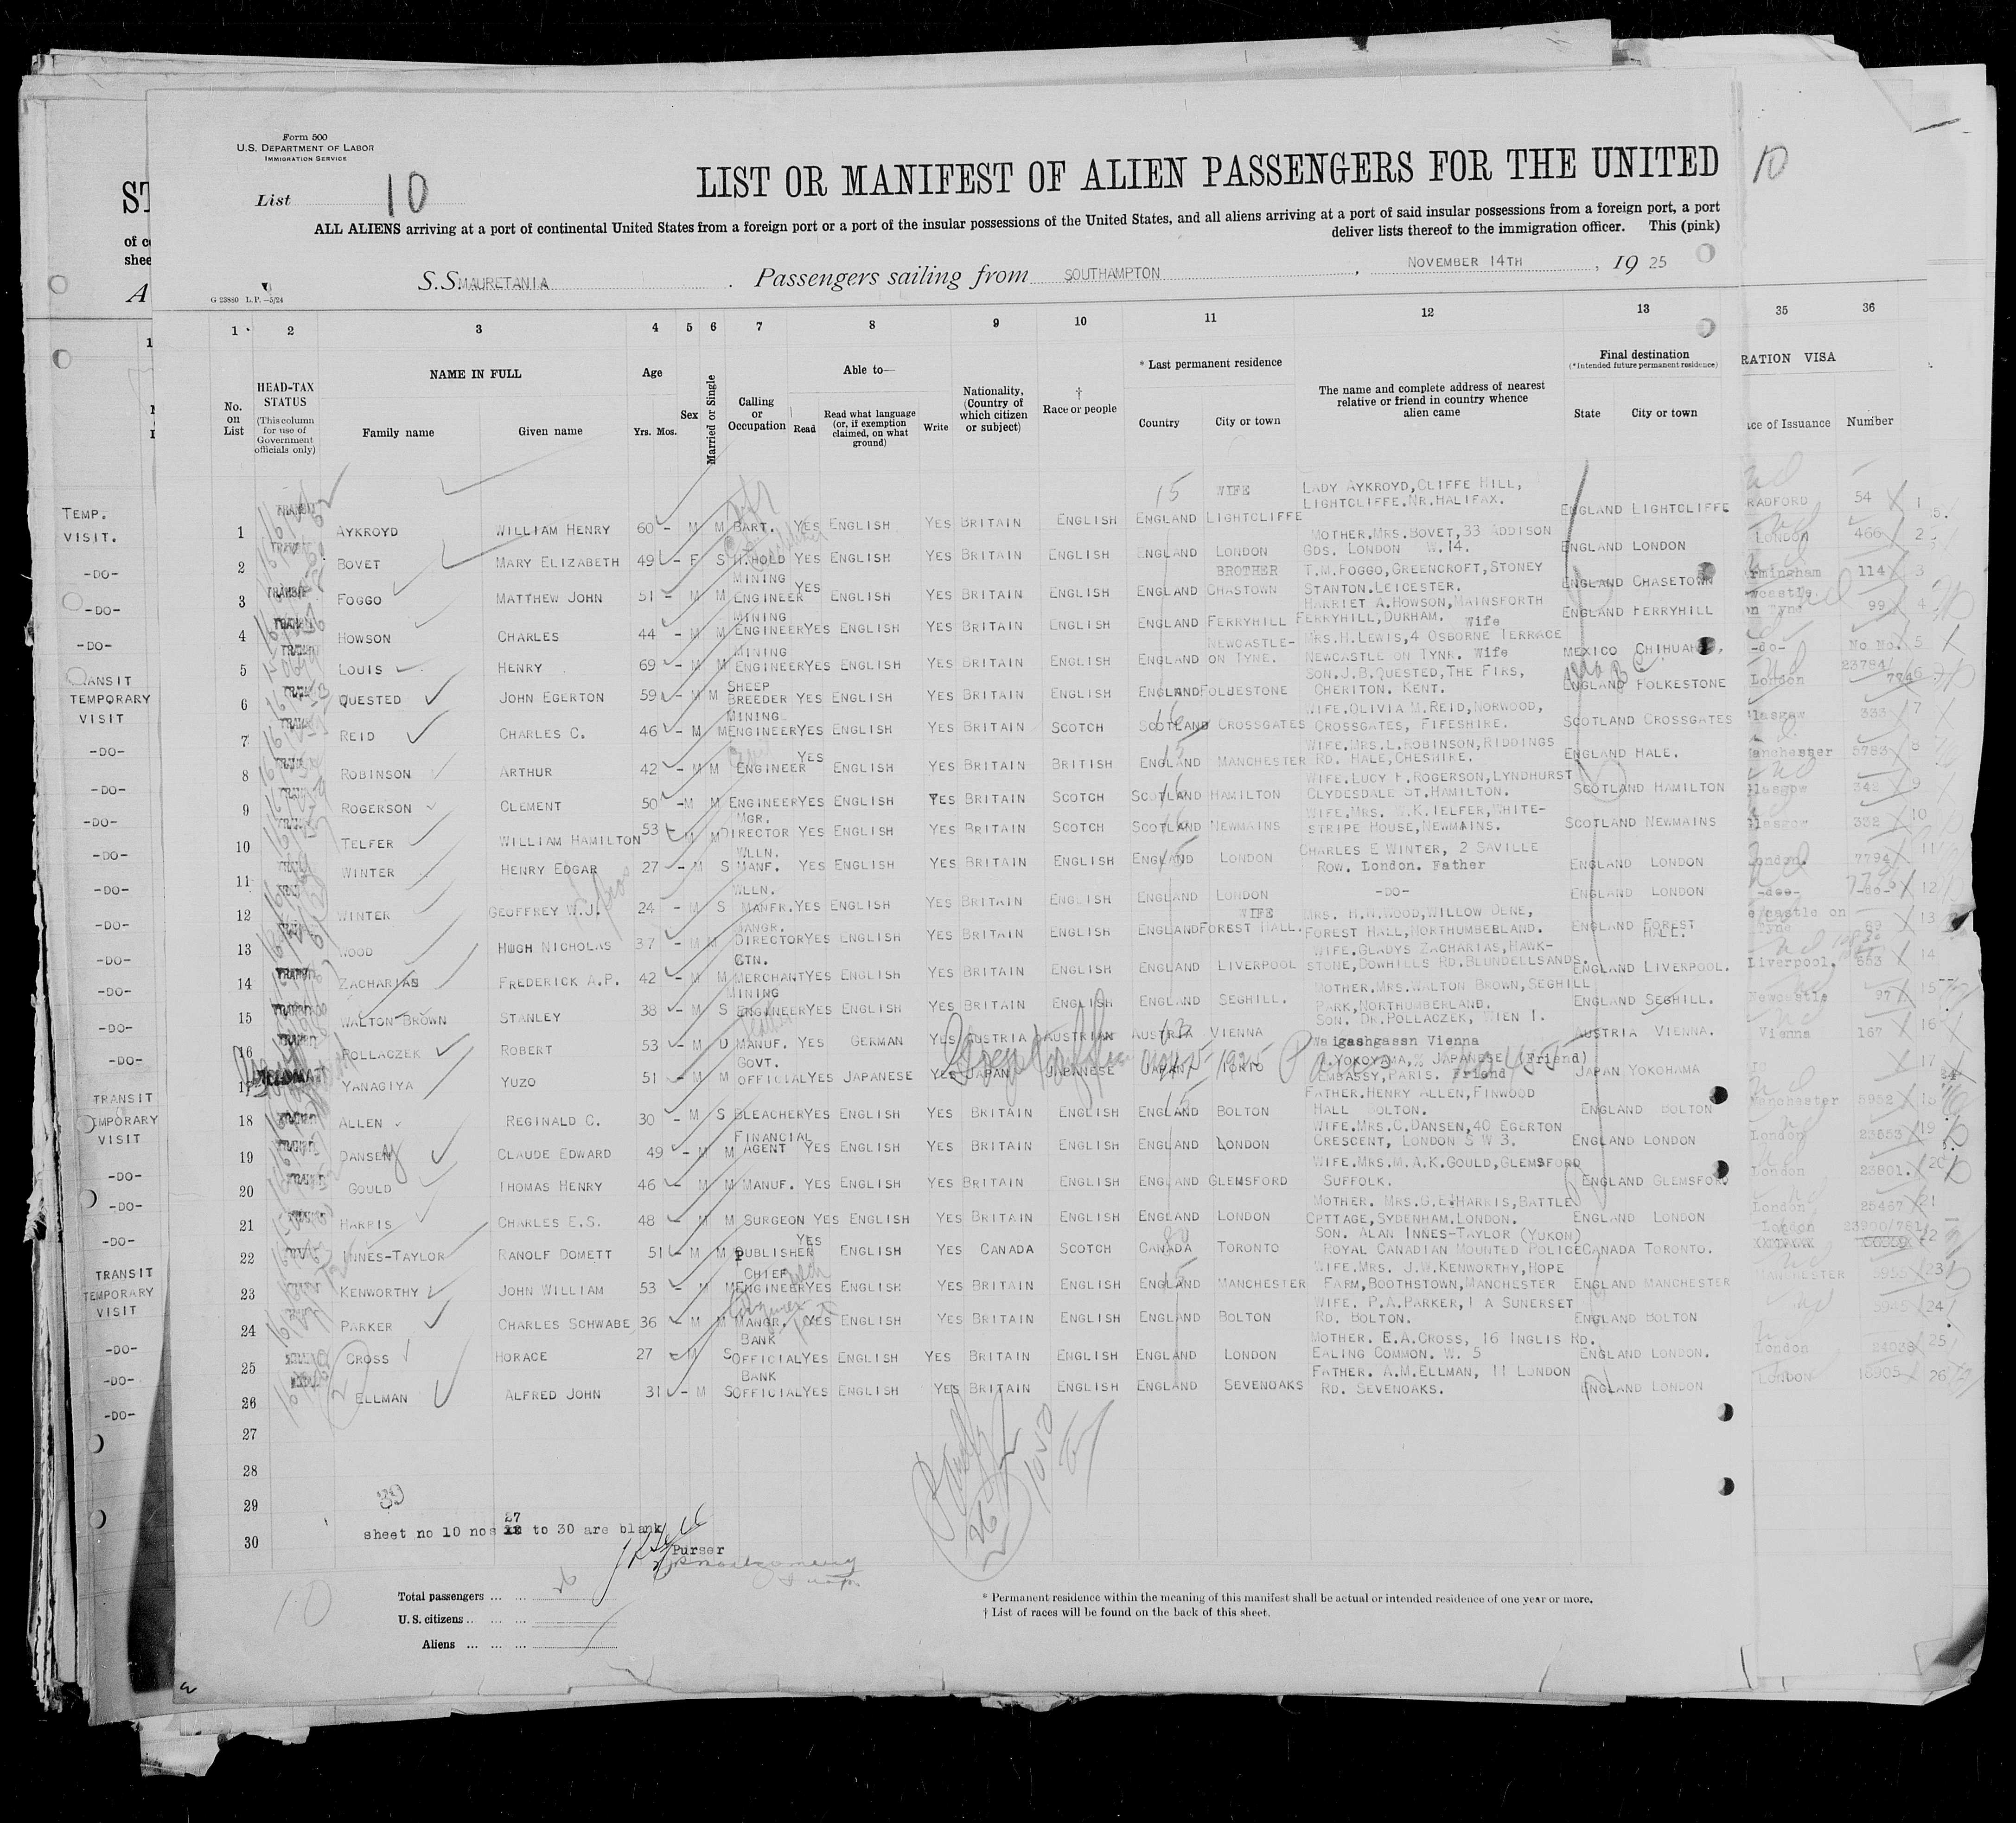 Form 500
U.S. DEPARTMENT OF LABOR
IMMIGRATION SERVICE
List 10
LIST OR MANIFEST OF ALIEN PASSENGERS FOR THE UNITED
10
ALL ALIENS arriving at a port of continental United States from a foreign port or a port of the insular possessions of the United States, and all aliens arriving at a port of said insular possessions from a foreign port, a port
deliver lists thereof to the immigration officer. This (pink)
S.S. MAURETANIA . Passengers sailing from SOUTHAMPTON , NOVEMBER 14TH , 19 25
G 23880 L.P.—5/24
1 2 3 4 5 6 7 8 9 10 11 12 13 35 36
No. on List
HEAD-TAX STATUS (This column for use of Government officials only)
NAME IN FULL
Family name Given name
Age
Yrs. Mos.
Sex
Married or Single
Calling or Occupation
Able to—
Read
Read what language (or, if exemption claimed, on what ground)
Write
Nationality, (Country of which citizen or subject)
† Race or people
* Last permanent residence
Country City or town
The name and complete address of nearest relative or friend in country whence alien came
Final destination
(*Intended future permanent residence)
State City or town
RATION VISA
ce of Issuance Number
1 AYKROYD WILLIAM HENRY 60 - M M BART. YES ENGLISH YES BRITAIN ENGLISH ENGLAND LIGHTCLIFFE WIFE LADY AYKROYD, CLIFFE HILL, LIGHTCLIFFE. NR. HALIFAX. ENGLAND LIGHTCLIFFE RADFORD 54 1
2 BOVET MARY ELIZABETH 49 - F S H.HOLD YES ENGLISH YES BRITAIN ENGLISH ENGLAND LONDON MOTHER. MRS. BOVET, 33 ADDISON GDS. LONDON W.14. ENGLAND LONDON LONDON 466 2
3 FOGGO MATTHEW JOHN 51 - M M MINING ENGINEER YES ENGLISH YES BRITAIN ENGLISH ENGLAND CHASTOWN BROTHER T.M. FOGGO, GREENCROFT, STONEY STANTON. LEICESTER. ENGLAND CHASETOWN rmingham 114 3
4 HOWSON CHARLES 44 - M M MINING ENGINEER YES ENGLISH YES BRITAIN ENGLISH ENGLAND FERRYHILL HARRIET A. HOWSON, MAINSFORTH FERRYHILL, DURHAM. Wife ENGLAND FERRYHILL wcastle on Tyne 99 4
5 LOUIS HENRY 69 - M M MINING ENGINEER YES ENGLISH YES BRITAIN ENGLISH ENGLAND NEWCASTLE-ON TYNE. MRS. H. LEWIS, 4 OSBORNE TERRACE NEWCASTLE ON TYNR. Wife MEXICO CHIHUAHUA, -do- No No. 5
6 QUESTED JOHN EGERTON 59 - M M SHEEP BREEDER YES ENGLISH YES BRITAIN ENGLISH ENGLAND FOLUESTONE SON. J.B. QUESTED, THE FIRS, CHERITON. KENT. ENGLAND FOLKESTONE London 23784/ 774 6
7 REID CHARLES C. 46 - M M MINING ENGINEER YES ENGLISH YES BRITAIN SCOTCH SCOTLAND CROSSGATES WIFE. OLIVIA M. REID, NORWOOD, CROSSGATES, FIFESHIRE. SCOTLAND CROSSGATES Glasgow 333 7
8 ROBINSON ARTHUR 42 - M M ENGINEER YES ENGLISH YES BRITAIN BRITISH ENGLAND MANCHESTER WIFE. MRS. L. ROBINSON, RIDDINGS RD. HALE, CHESHIRE. ENGLAND HALE. Manchester 5783 8
9 ROGERSON CLEMENT 50 - M M ENGINEER YES ENGLISH YES BRITAIN SCOTCH SCOTLAND HAMILTON WIFE. LUCY F. ROGERSON, LYNDHURST CLYDESDALE ST. HAMILTON. SCOTLAND HAMILTON Glasgow 342 9
10 TELFER WILLIAM HAMILTON 53 - M M MGR. DIRECTOR YES ENGLISH YES BRITAIN SCOTCH SCOTLAND NEWMAINS WIFE. MRS. W.K. TELFER, WHITE-STRIPE HOUSE, NEWMAINS. SCOTLAND NEWMAINS Glasgow 332 10
11 WINTER HENRY EDGAR 27 - M S WLLN. MANF. YES ENGLISH YES BRITAIN ENGLISH ENGLAND LONDON CHARLES E WINTER, 2 SAVILLE Row. London. Father ENGLAND LONDON London. 7794 11
12 WINTER GEOFFREY W.J. 24 - M S WLLN. MANFR. YES ENGLISH YES BRITAIN ENGLISH ENGLAND LONDON -DO- ENGLAND LONDON -do- 12
13 WOOD HUGH NICHOLAS 37 - M M MANGR. DIRECTOR YES ENGLISH YES BRITAIN ENGLISH ENGLAND FOREST HALL. WIFE MRS. H.N. WOOD, WILLOW DENE, FOREST HALL, NORTHUMBERLAND. ENGLAND FOREST HALL. castle on Tyne 89 13
14 ZACHARIAS FREDERICK A.P. 42 - M M CTN. MERCHANT YES ENGLISH YES BRITAIN ENGLISH ENGLAND LIVERPOOL WIFE. GLADYS ZACHARIAS, HAWK-STONE, DOWHILLS RD. BLUNDELLSANDS. ENGLAND LIVERPOOL. Liverpool. 553 14
15 WALTON-BROWN STANLEY 38 - M S MINING ENGINEER YES ENGLISH YES BRITAIN ENGLISH ENGLAND SEGHILL. MOTHER. MRS. WALTON BROWN, SEGHILL PARK, NORTHUMBERLAND. ENGLAND SEGHILL. Newcastle 97 15
16 POLLACZEK ROBERT 53 - M D MANUF. YES GERMAN YES AUSTRIA AUSTRIAN AUSTRIA VIENNA SON. DR. POLLACZEK, WIEN I. Weigashgassn Vienna AUSTRIA VIENNA. Vienna 167 16
17 DIPLOMAT YANAGIYA YUZO 51 - M M GOVT. OFFICIAL YES JAPANESE YES JAPAN JAPANESE JAPAN TOKIO YOKOYAMA, % JAPANESE (Friend) EMBASSY, PARIS. Friend JAPAN YOKOHAMA 17
18 ALLEN REGINALD C. 30 - M S BLEACHER YES ENGLISH YES BRITAIN ENGLISH ENGLAND BOLTON FATHER. HENRY ALLEN, FINWOOD HALL BOLTON. ENGLAND BOLTON Manchester 5952 18
19 DANSEY CLAUDE EDWARD 49 - M M FINANCIAL AGENT YES ENGLISH YES BRITAIN ENGLISH ENGLAND LONDON WIFE. MRS. C. DANSEN, 40 EGERTON CRESCENT, LONDON S W 3. ENGLAND LONDON London 23553 19
20 GOULD THOMAS HENRY 46 - M M MANUF. YES ENGLISH YES BRITAIN ENGLISH ENGLAND GLEMSFORD WIFE. MRS. M.A.K. GOULD, GLEMSFORD SUFFOLK. ENGLAND GLEMSFORD London 23801. 20
21 HARRIS CHARLES E.S. 48 - M M SURGEON YES ENGLISH YES BRITAIN ENGLISH ENGLAND LONDON MOTHER. MRS. G.E. HARRIS, BATTLE CPTTAGE, SYDENHAM. LONDON. ENGLAND LONDON London 25467 21
22 INNES-TAYLOR RANOLF DOMETT 51 - M M PUBLISHER YES ENGLISH YES CANADA SCOTCH CANADA TORONTO SON. ALAN INNES-TAYLOR (YUKON) ROYAL CANADIAN MOUNTED POLICE CANADA TORONTO. London 23900/761 22
23 KENWORTHY JOHN WILLIAM 53 - M M CHIEF ENGINEER YES ENGLISH YES BRITAIN ENGLISH ENGLAND MANCHESTER WIFE. MRS. J.W. KENWORTHY, HOPE FARM, BOOTHSTOWN, MANCHESTER ENGLAND MANCHESTER MANCHESTER 5955 23
24 PARKER CHARLES SCHWABE 36 - M M MANGR. YES ENGLISH YES BRITAIN ENGLISH ENGLAND BOLTON WIFE. P.A. PARKER, 1 A SUNERSET RD. BOLTON. ENGLAND BOLTON 5945 24
25 CROSS HORACE 27 - M S BANK OFFICIAL YES ENGLISH YES BRITAIN ENGLISH ENGLAND LONDON MOTHER. E.A. CROSS, 16 INGLIS RD. EALING COMMON. W. 5 ENGLAND LONDON. London 24038 25
26 ELLMAN ALFRED JOHN 31 - M S BANK OFFICIAL YES ENGLISH YES BRITAIN ENGLISH ENGLAND SEVENOAKS FATHER. A.M. ELLMAN, 11 LONDON RD. SEVENOAKS. ENGLAND LONDON LONDON 18905 26
27
28
29
30
sheet no 10 nos 27 to 30 are blank
Purser
Total passengers ... ...
U.S. citizens ... ... ...
Aliens ... ... ...
10
* Permanent residence within the meaning of this manifest shall be actual or intended residence of one year or more.
† List of races will be found on the back of this sheet.
ST
of c
shee
A
TEMP.
VISIT.
-DO-
-DO-
-DO-
TRANSIT
TEMPORARY
VISIT
-DO-
-DO-
-DO-
-DO-
-DO-
-DO-
-DO-
-DO-
-DO-
-DO-
TRANSIT
TEMPORARY
VISIT
-DO-
-DO-
-DO-
TRANSIT
TEMPORARY
VISIT
-DO-
-DO-
-DO-